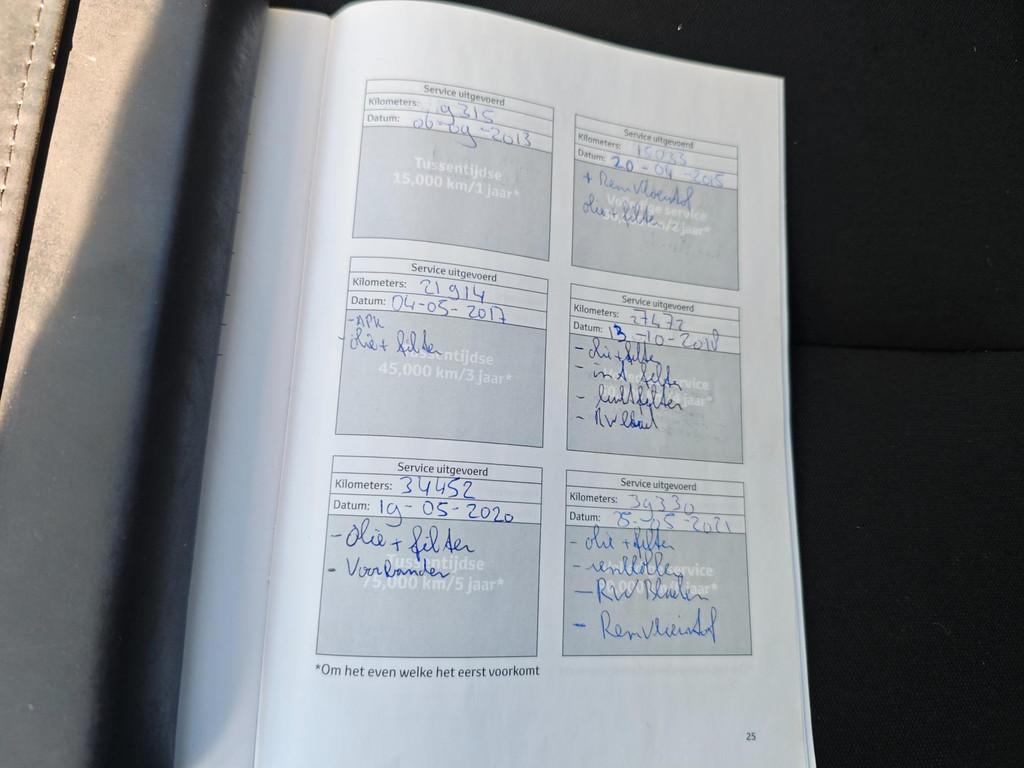 Service uitgevoerd
Kilometers: 9315
Datum: 06-09-2013
Tussentijdse
15,000 km/1 jaar*
Service uitgevoerd
Kilometers: 15033
Datum: 20-04-2015
+ Remvloeistof
olie + filter
/2 jaar*
Service uitgevoerd
Kilometers: 21914
Datum: 04-05-2017
-APK
- olie + filter
Tussentijdse
45,000 km/3 jaar*
Service uitgevoerd
Kilometers: 27472
Datum: 13-10-2018
- olie + filter
- int. filter
- luchtfilter
Service uitgevoerd
Kilometers: 34452
Datum: 19-05-2020
- Olie + filter
- Voorbanden
Tussentijdse
75,000 km/5 jaar*
Service uitgevoerd
Kilometers: 39330
Datum: 25-05-2021
- olie + filter
- RW Bladen
- Remvloeistof
*Om het even welke het eerst voorkomt
25